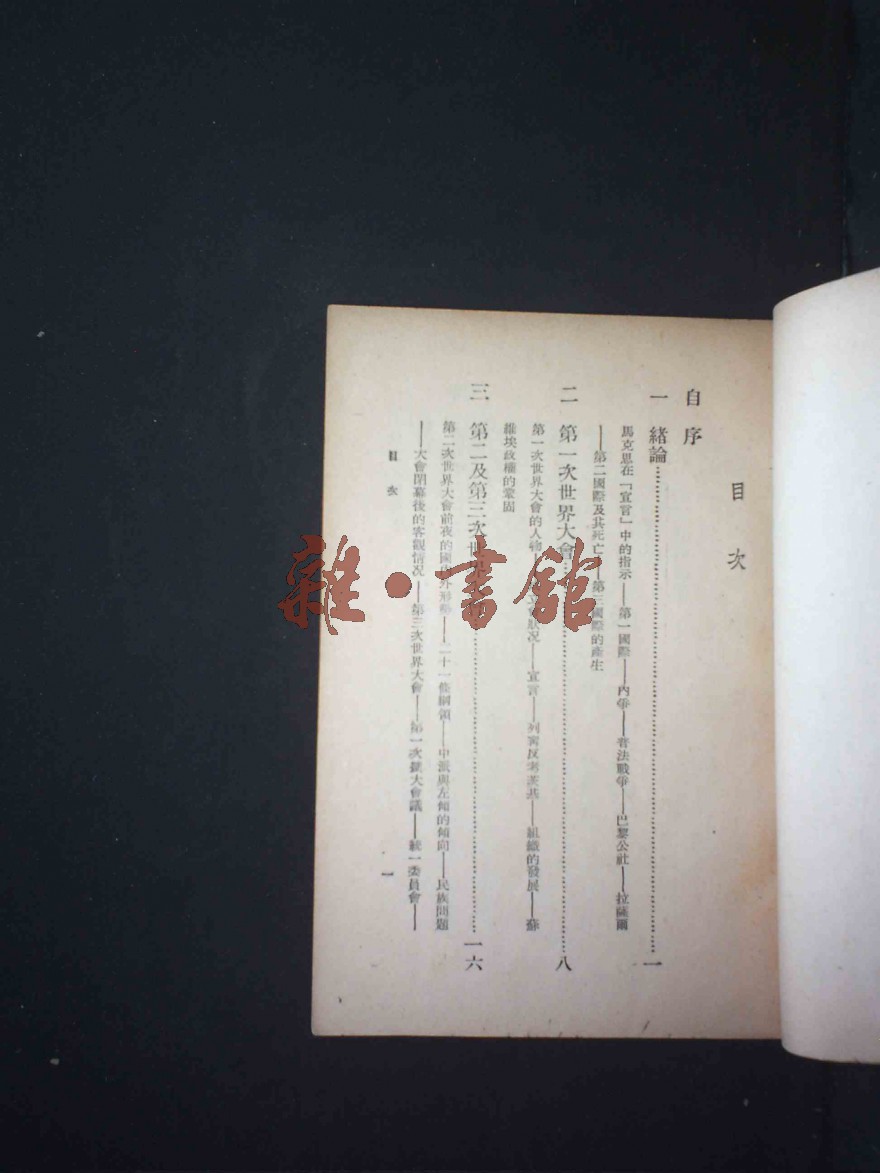 目次
自序
一 緒論……一
馬克思在「宣言」中的指示——第一國際——內爭——普法戰爭——巴黎公社——拉薩爾
——第二國際及其死亡——第三國際的產生
二 第一次世界大會……八
第一次世界大會的人物——狀況——宣言——列甯反考茨基——組織的發展——蘇
維埃政權的鞏固
三 第二及第三次世……一六
第二次世界大會前夜的國內外形勢——二十一條綱領——中派與左傾的傾向——民族問題
——大會閉幕後的客觀情况——第三次世界大會——第一次擴大會議——統一委員會——
目次
一
雜·書館